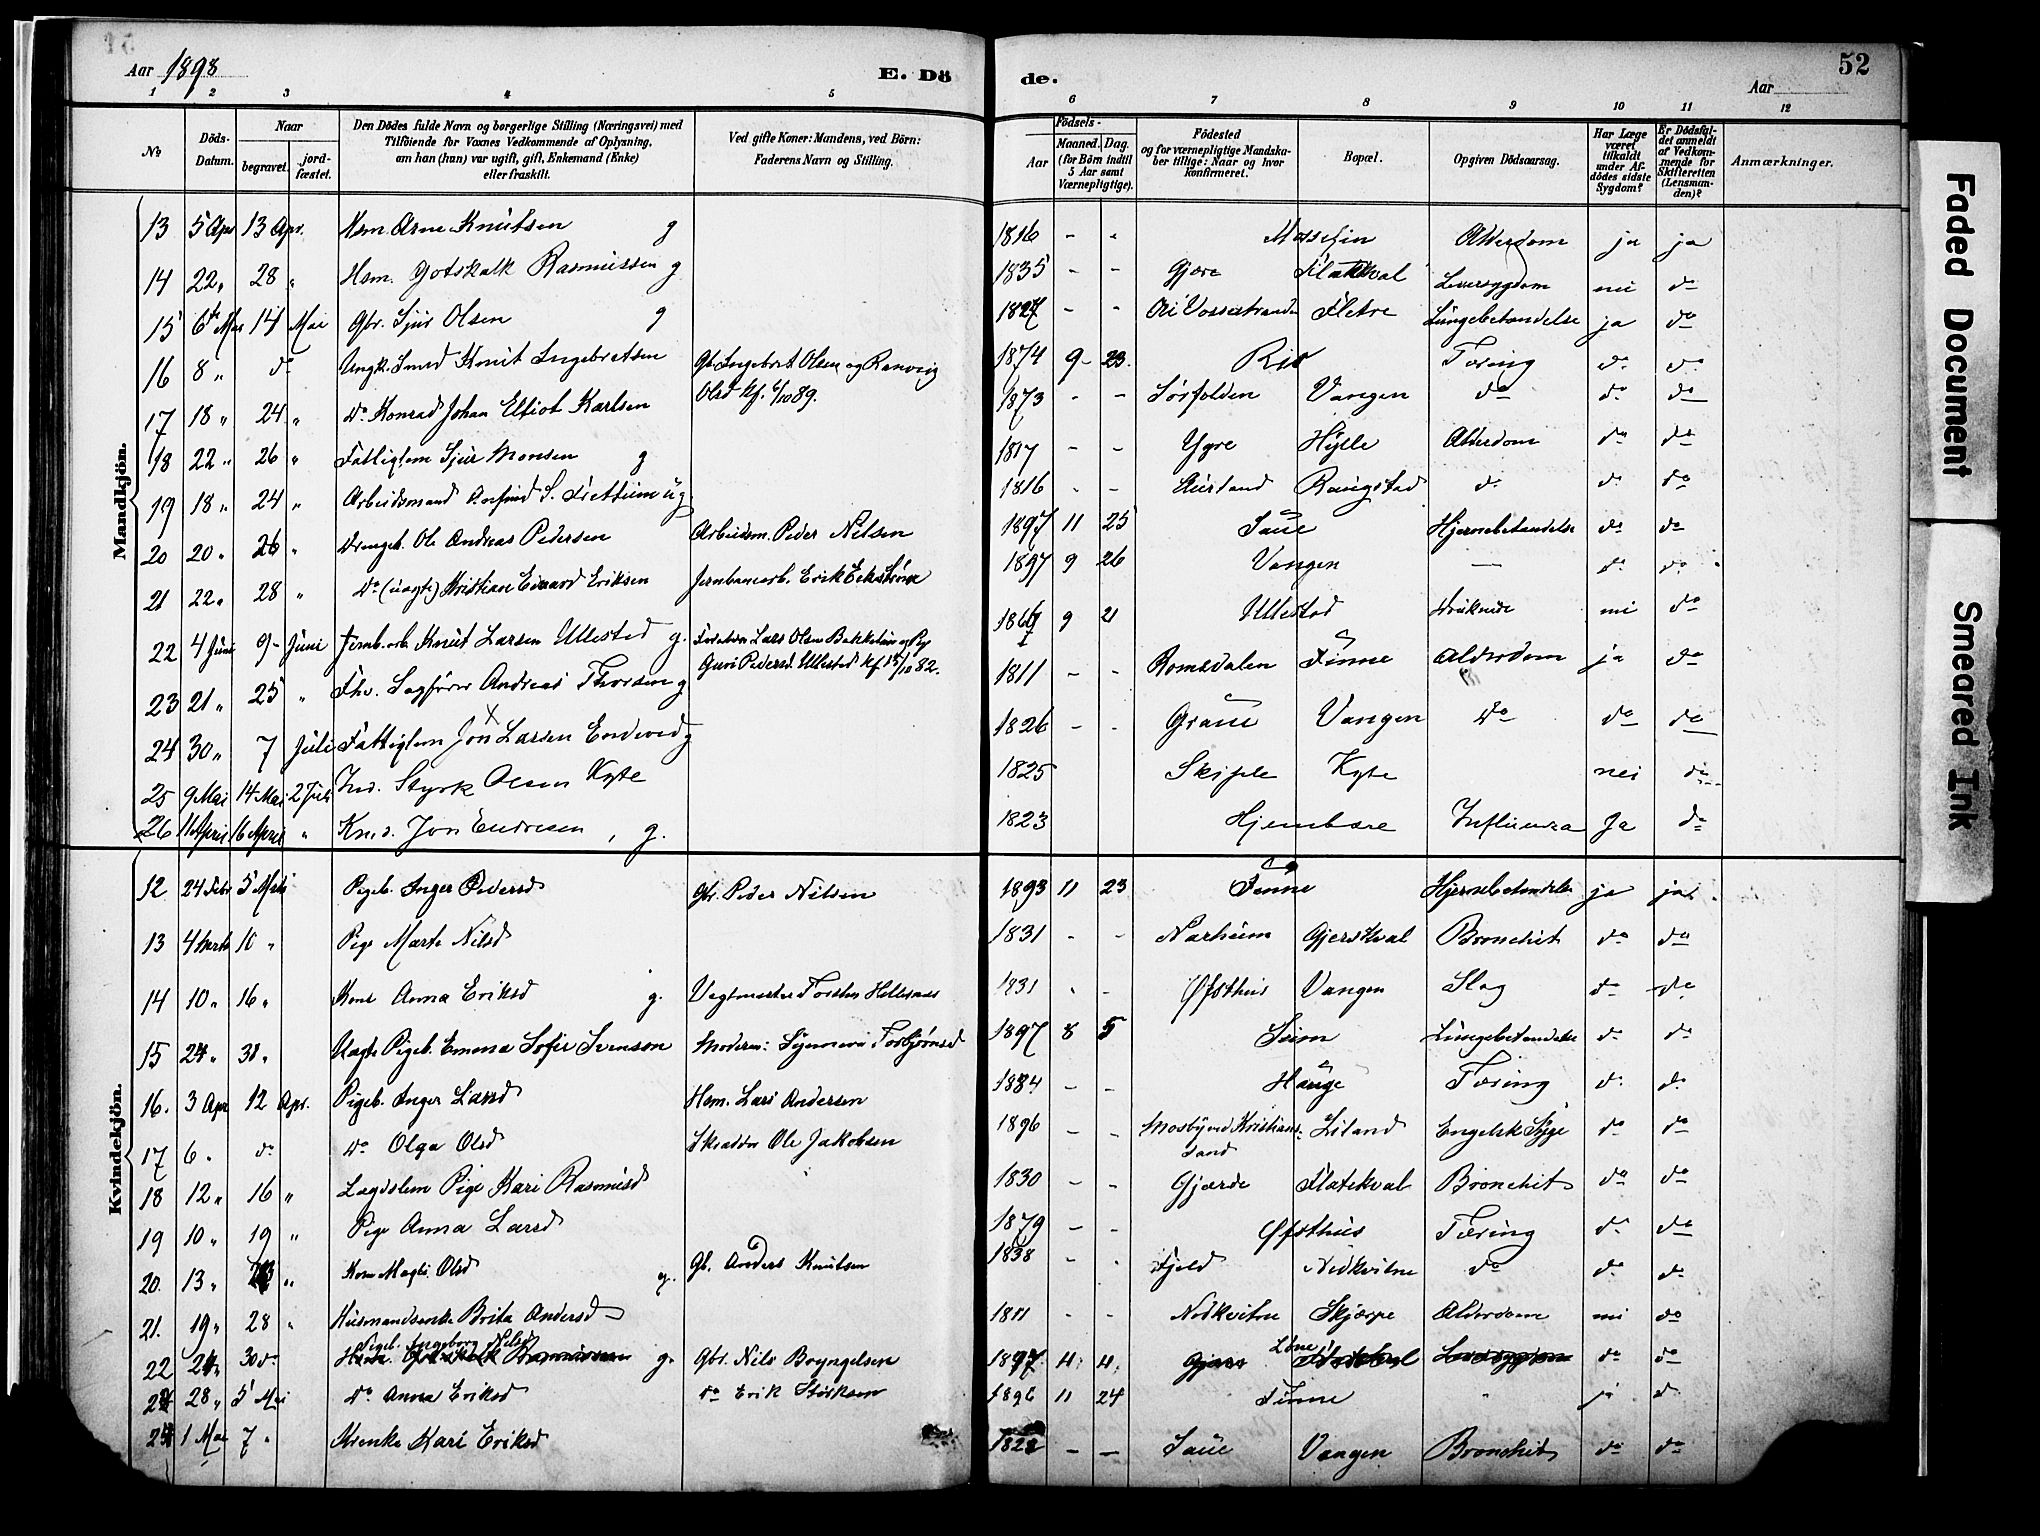 Aar 1898
E. Dö
de.
52
Aar
1 2 3 4 5 6 7 8 9 10 11 12
No
Döds-Datum.
Naar
begravet.
jord-fæstet.
Den Dödes fulde Navn og borgerlige Stilling (Næringsvei) med
Tilföiende for Voxnes Vedkommende af Oplysning,
om han (hun) var ugift, gift, Enkemand (Enke)
eller fraskilt.
Ved gifte Koner: Mandens, ved Börn:
Faderens Navn og Stilling.
Födsels-
Aar
Maaned. Dag.
(for Börn indtil
5 Aar samt
Værnepligtige).
Födested
og for værnepligtige Mandska-
ber tillige: Naar og hvor
konfirmeret.
Bopæl.
Opgiven Dödsaarsag.
Har Læge
været
tilkaldt
under Af-
dödes sidste
Sygdom?
Er Dödsfal-
det anmeldt
af Vedkom-
mende for
Skifteretten
(Lensman-
den)?
Anmærkninger.
Mandkjön.
13 5 Apr 13 Apr. Arne Knutsen g 1816 - - Alderdom ja ja
14 22 " 28 " Hsm. Gotskalk Rasmussen g 1835 - - Gjøre Flatekval Leversygdom nei do
15 6te Mai 14 Mai Gbr. Sjur Olsen g 1827 - - Vossestranden Fletre Lungebetændelse ja do
16 8 " do Ungk. Smed Knut Ingebretsen Gb. Ingebret Olsen og Ranveig 1874 9 - 23 Tæring do do
Olsd kf. 6/10 89.
17 18 " 24 " do Konrad Johan Elliot Karlsen 1873 - - Sørfolden Vangen do do do
18 22 " 26 " Fattiglem Sjur Monsen g 1817 - - Ygre Hylle Alderdom do do
19 18 " 24 " Arbeidsmand S. ug. 1816 - - Aurland Raugstad do do do
20 20 " 26 " Drengeb. Ole Andreas Pedersen Arbeidsm. Peder Nilsen 1897 11 25 Saue Hjernebetændelse do do
21 22 " 28 " do (uægte) Kristian Edvard Eriksen Jernbanearb. Erik Ekstrøm 1897 9 26 Vangen — do do
22 4 Juni 9 - Juni Jernb. arb. Knut Larsen Ullestad g. Lars Olsen Bakketun og 9 21 Ullestad Druknede nei do
Guri Pedersd. Ullestad kf. 15/10 82.
23 21 " 25 " Fhv. Sagfører Andreas Thorsen g 1811 - - Romsdalen Finne Alderdom ja do
24 30 " 7 Juli Fattiglem Jon Larsen Endeved g 1826 - - Graue Vangen do do do
25 9 Mai 14 Mai 2 Juli Ind. Styrk Olsen Kyte 1825 Skiple Kyte nei do
26 11 April 16 April " Jon Endresen, g. 1823 Hjembære Influenza Ja do
Kvindekjön.
12 24 Febr 5 Marts Pigeb. Inger Pedersd Gbr. Peder Nilsen 1893 11 23 Finne Hjernebetændelse ja ja
13 4 Marts 10 " Pige Marta Nilsd 1831 - - Narheim Gjerskval Bronchit do do
14 10 " 16 " Kone Anna Eriksd g. Vegtmester Torsten Hellesnes 1831 - - Øfsthus Vangen Slag do do
15 24 " 31 " Uægte Pigeb. Emma Sofie Svenson Moderen: Synneva Torbjørnsd 1897 8 5 Seim Lungebetændelse do do
16. 3 Apr 12 Apr. Pigeb. Inger Larsd Hsm. Lars Andersen 1884 - - Hauge Tæring do do
17 6 " do do Olga Olsd Skrædder Ole Jakobsen 1896 - - Mosby ved Kristian- Liland Engelsk Syge do do
sand
18 12 " 16 " Lægdslem Pige Kari Rasmusd 1830 - - Gjærde Flatekval Bronchit do do
19 10 " 19 " Pige Anna Larsd 1879 - - Øfsthus Tæring do do
20. 13 " " Kone Olsd g. Gb. Anders Knutsen 1838 - - Fjeld Nedkvitne do do do
21. 19 " 28 " Husmandsenke Brita Andersd 1811 - - Nedkvitne Skjerpe Alderdom nei do
22 30 do Pigeb. Ingeborg Nilsd g. Gbr. Nils Brynjelsen 1897 Løne do do
28 " 5 Mai do Anna Eriksd do Erik Størksen 1896 11 24 Finne " ja do
1 Mai 7 " Kari Eriksd - - Saue Vangen Bronchit do do
Faded Document
Smeared Ink